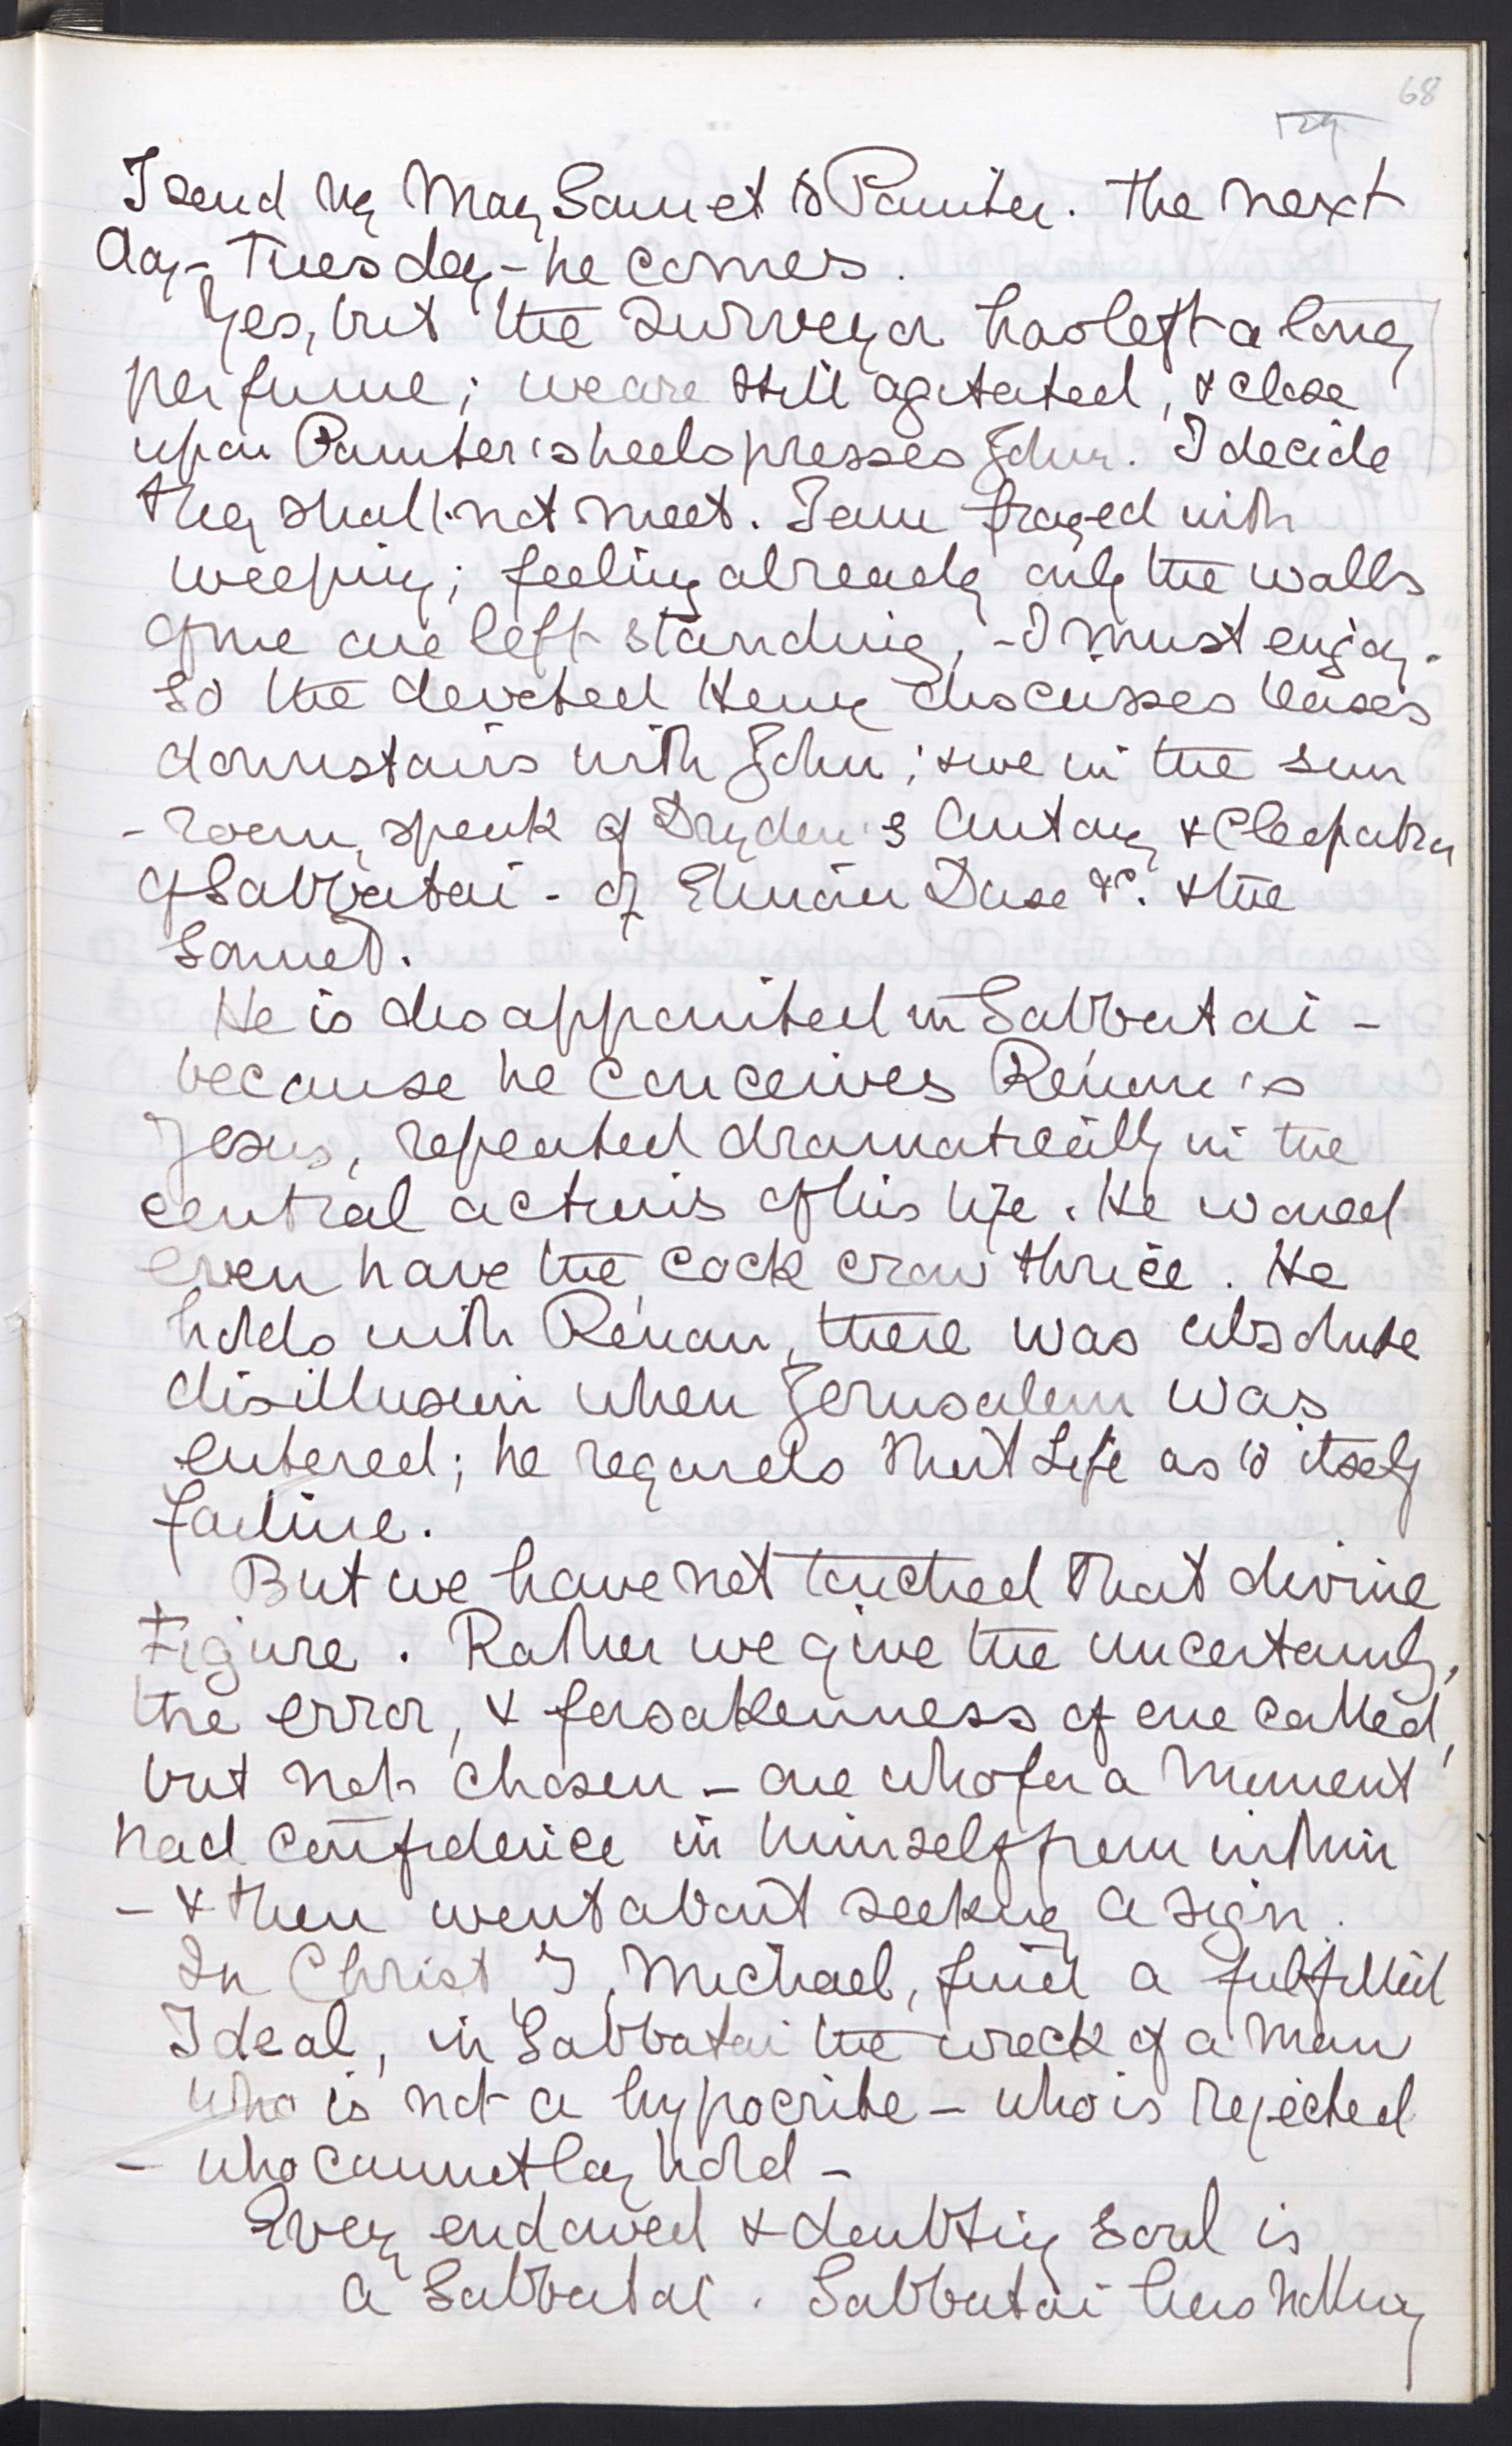 68
129
I send my May Sonnet to Painter. The next
day – Tuesday – he comes.
Yes, but the Surveyor has left a long
perfume; we are still agitated, & close
upon Painter's heels presses John. I decide
they shall not meet. I am frayed with
weeping; feeling already only the walls
of me are left standing, – I must enjoy.
So the devoted Heny discusses leases
downstairs with John; & we in the sun
– room, speak of Dryden's Antony & Cleopatra
of Sabbatai – of Duse &c. & the
Sonnet.
He is disappointed in Sabbatai –
because he conceives Rénan's
Jesus, repeated dramatically in the
central actions of his life. He would
even have the cock crow thrice. He
holds with Rénan, there was absolute
disillusion when Jerusalem was
entered; he regards that Life as to itself
failure.
But we have not touched that divine
Figure. Rather we give the uncertainty,
the error, & forsakenness of one called,
but not chosen – one who for a moment
had confidence in himself from within
– & then went about seeking a sign.
In Christ I, Michael, find a fulfilled
Ideal, in Sabbatai the wreck of a man
who is not a hypocrite – who is rejected
– who cannot lay hold –
Every endowed & doubting soul is
a Sabbatai. Sabbatai has nothing